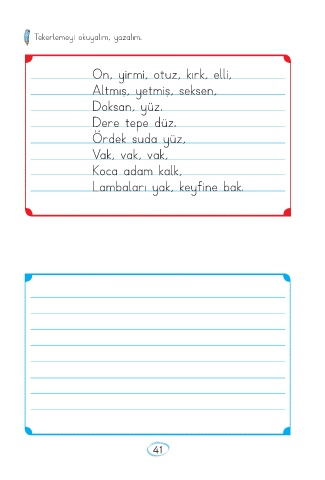 Tekerlemeyi okuyalım, yazalım.
On, yirmi, otuz, kırk, elli,
Altmış, yetmiş, seksen,
Doksan, yüz.
Dere tepe düz.
Ördek suda yüz,
Vak, vak, vak,
Koca adam kalk,
Lambaları yak, keyfine bak.
41